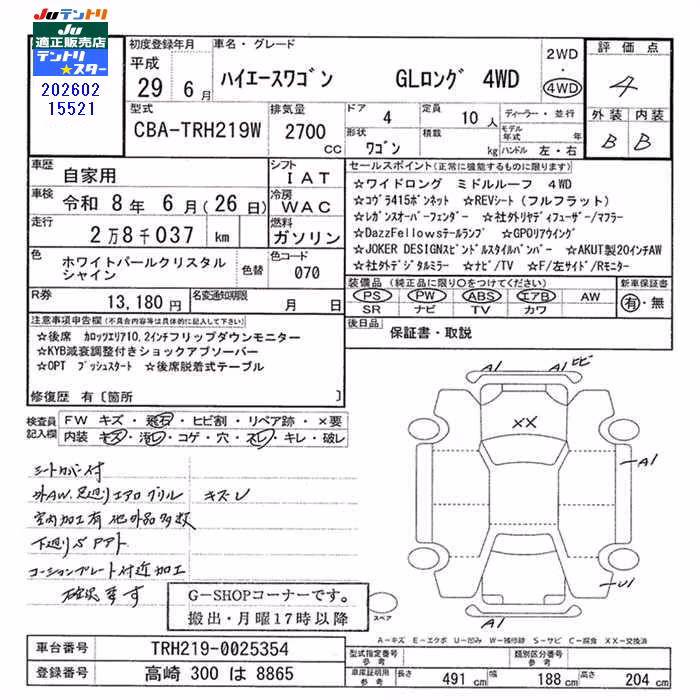 Juテントリ
Ju
適正販売店
テントリ
★スター
202602
15521
初度登録年月
平成
29 6月
車名・グレード
ハイエースワゴン GLロング 4WD
2WD
・
4WD
評価点
4
外装 内装
B B
型式
CBA-TRH219W
排気量
2700
cc
ドア
4
形状
ワゴン
定員
10 人
積載
kg
ディーラー・並行
モデル年式 年
ハンドル 左・右
車歴
自家用
シフト
IAT
車検
令和 8年 6月(26日)
冷房
WAC
走行
2万8千037 km
燃料
ガソリン
色
ホワイトパールクリスタルシャイン
色替
色コード
070
R券
13,180円
名変通知期限
月 日
セールスポイント(正常に機能するものに限ります)
☆ワイドロング ミドルルーフ 4WD
☆コブラ415ボンネット ☆REVシート(フルフラット)
☆レガンスオーバーフェンダー ☆社外リヤディフューザー/マフラー
☆DazzFellowsテールランプ ☆GPOリアウイング
☆JOKER DESIGNスピンドルスタイルバンパー ☆AKUT製20インチAW
☆社外デジタルミラー ☆ナビ/TV ☆F/左サイド/Rモニター
装備品(純正品に限り○をつけてください)
PS PW ABS エアB AW
SR ナビ TV カワ
新車保証書
有・無
後日品
保証書・取説
注意事項申告欄(不具合内容等は具体的に記入して下さい)
☆後席 カロッツェリア10.2インチフリップダウンモニター
☆KYB減衰調整付きショックアブソーバー
☆OPT プッシュスタート ☆後席脱着式テーブル
修復歴 有〔箇所 〕
検査員記入欄
FW キズ・飛石・ヒビ割・リペア跡・×要
内装 キズ・汚レ・コゲ・穴・スレ・キレ・破レ
シートカバー付
外AW、足廻りエアログリル キズレ
室内加工有 他外品多数
下廻りS Pアト
コーションプレート付近加工
確認要す
G-SHOPコーナーです。
搬出・月曜17時以降
A1
A1 ヒビ
XX
A1
U1
A1
スペア
A-キズ E-エクボ U-凹み W-補修跡 S-サビ C-腐食 XX-交換済
車台番号
TRH219-0025354
登録番号
高崎 300 は 8865
型式指定番号
参考
類別区分番号
参考
車庫証明用
参考
長さ 491 cm 幅 188 cm 高さ 204 cm